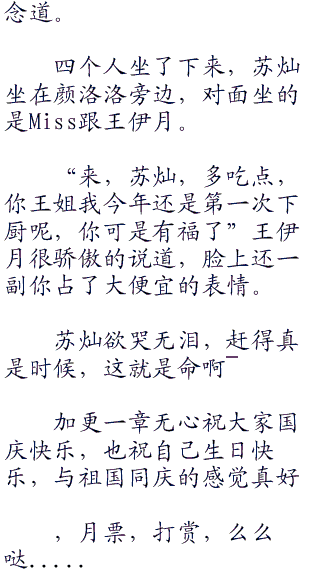 念道。
四个人坐了下来，苏灿
坐在颜洛洛旁边，对面坐的
是Miss跟王伊月。
“来，苏灿，多吃点，
你王姐我今年还是第一次下
厨呢，你可是有福了”王伊
月很骄傲的说道，脸上还一
副你占了大便宜的表情。
苏灿欲哭无泪，赶得真
是时候，这就是命啊¯
加更一章无心祝大家国
庆快乐，也祝自己生日快
乐，与祖国同庆的感觉真好
，月票，打赏，么么
哒.....